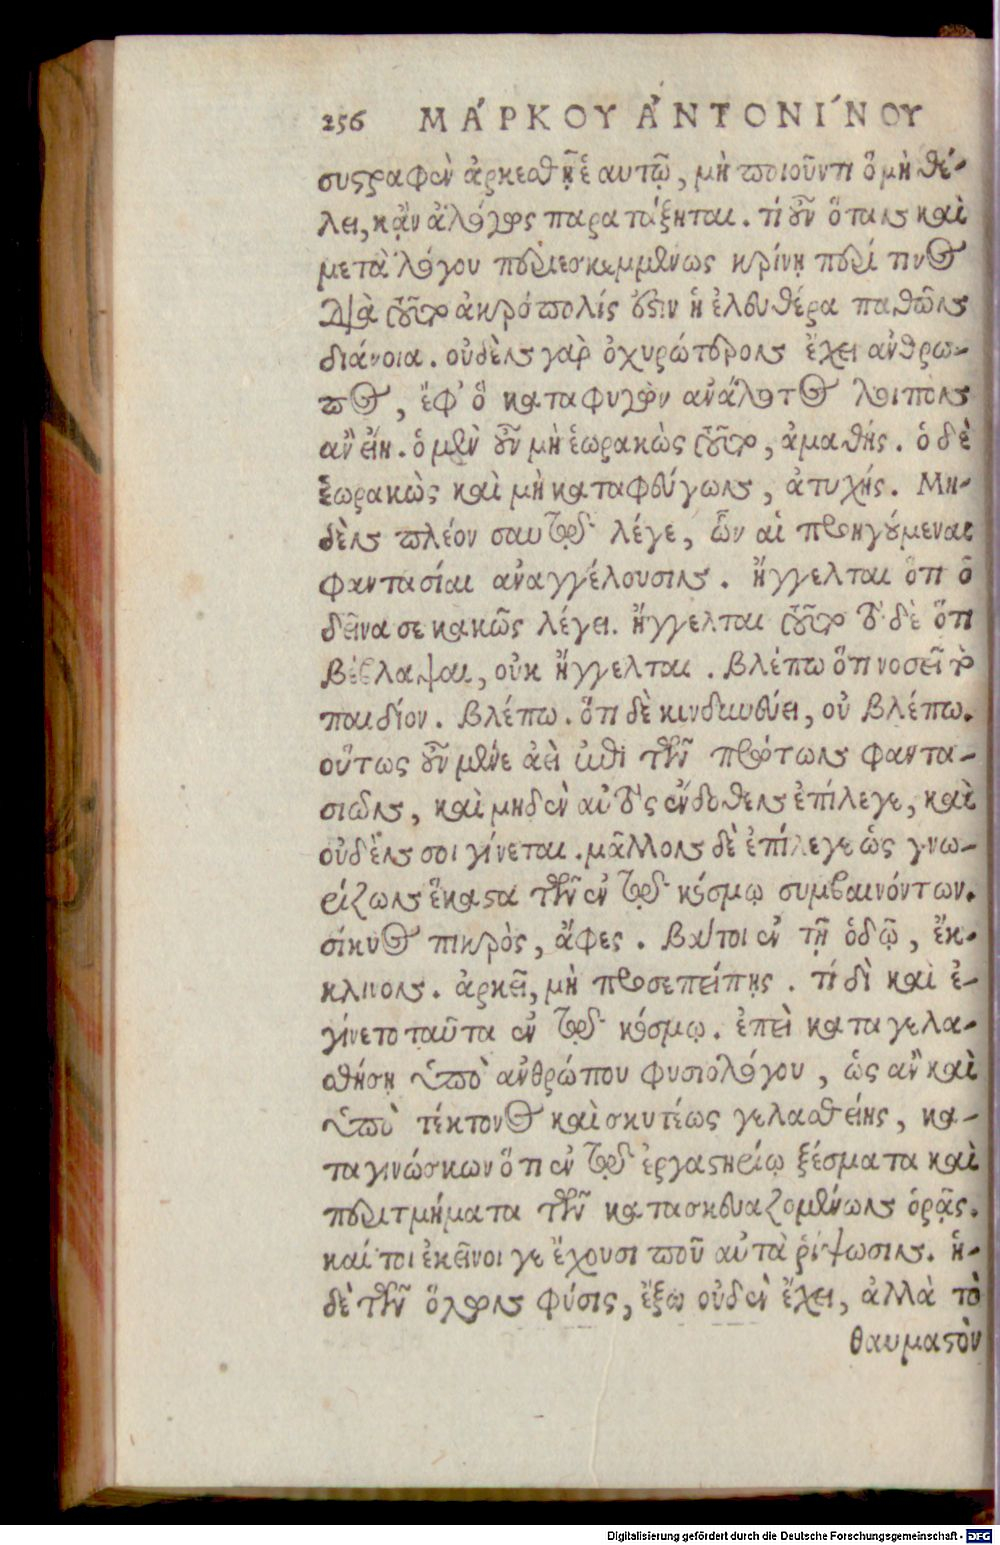 256 ΜΆΡΚΟΥ ἈΝΤΟΝΙ´ΝΟΥ
συστραφὲν ἀρκεσθῇ ἑαυτῷ, μὴ ποιοῦντι ὃ μὴ θέ-
λει, κᾂν ἀλόγως παρατάξηται. τί οὖν ὅταν καὶ
μετὰ λόγου περιεσκεμμένως κρίνῃ περί τινος
Διὰ τοῦτο ἀκρόπολίς ἐστιν ἡ ἐλευθέρα παθῶν
διάνοια. οὐδὲν γὰρ ὀχυρώτερον ἔχει ἄνθρω-
πος, ἐφ' ὃ καταφυγὼν ἀνάλωτος λοιπὸν
ἂν εἴη. ὁ μὲν οὖν μὴ ἑωρακὼς τοῦτο, ἀμαθής. ὁ δὲ
ἑωρακὼς καὶ μὴ καταφεύγων, ἀτυχής. Μη-
δὲν πλέον σαυτῷ λέγε, ὧν αἱ προηγούμεναι
φαντασίαι ἀναγγέλουσιν. Ἤγγελται ὅτι ὁ
δεῖνα σε κακῶς λέγει. ἤγγελται τοῦτο τὸ δὲ ὅτι
βέβλαψαι, οὐκ ἤγγελται. βλέπω ὅτι νοσεῖ τὸ
παιδίον. βλέπω. ὅτι δὲ κινδυνεύει, οὐ βλέπω.
οὕτως οὖν μένε ἀεὶ ἐπὶ τῶν πρώτων φαντα-
σιῶν, καὶ μηδὲν αὐτὸς ἔνδοθεν ἐπίλεγε, καὶ
οὐδέν σοι γίνεται. μᾶλλον δὲ ἐπίλεγε ὡς γνω-
ρίζων ἕκαστα τῶν ἐν τῷ κόσμῳ συμβαινόντων.
σίκυος πικρὸς, ἄφες. βάτοι ἐν τῇ ὁδῷ, ἔκ-
κλινον. ἀρκεῖ, μὴ προσεπείπῃς. τί δὲ καὶ ἐ-
γίνετο ταῦτα ἐν τῷ κόσμῳ. ἐπεὶ καταγελα-
σθήσῃ ὑπὸ ἀνθρώπου φυσιολόγου, ὡς ἂν καὶ
ὑπὸ τέκτονος καὶ σκυτέως γελασθείης, κα-
ταγινώσκων ὅτι ἐν τῷ ἐργαστηρίῳ ξέσματα καὶ
περιτμήματα τῶν κατασκευαζομένων ὁρᾷς.
καίτοι ἐκεῖνοι γε ἔχουσι ποῦ αὐτὰ ῥίψωσιν. ἡ-
δὲ τῶν ὅλων φύσις, ἔξω οὐδὲν ἔχει, ἀλλὰ τὸ
θαυμαστὸν
Digitalisierung gefördert durch die Deutsche Forschungsgemeinschaft - DFG